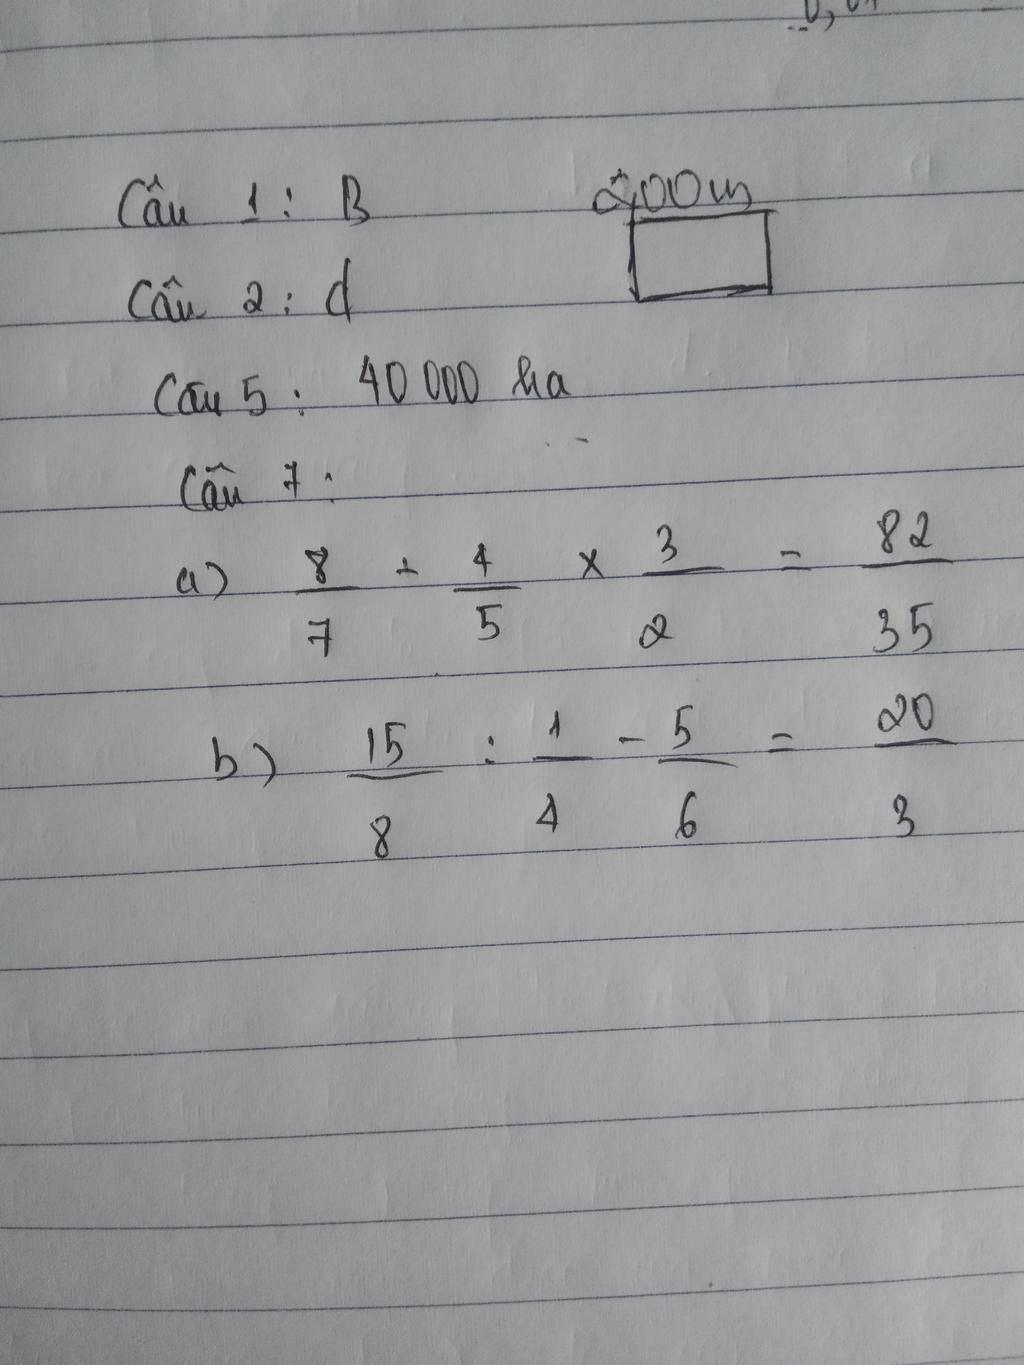 Câu 1: B
200m
Câu 2: d
Câu 5: 40 000 ha
Câu 7:
a) 8/7 + 4/5 x 3/2 = 82/35
b) 15/8 : 1/4 - 5/6 = 20/3